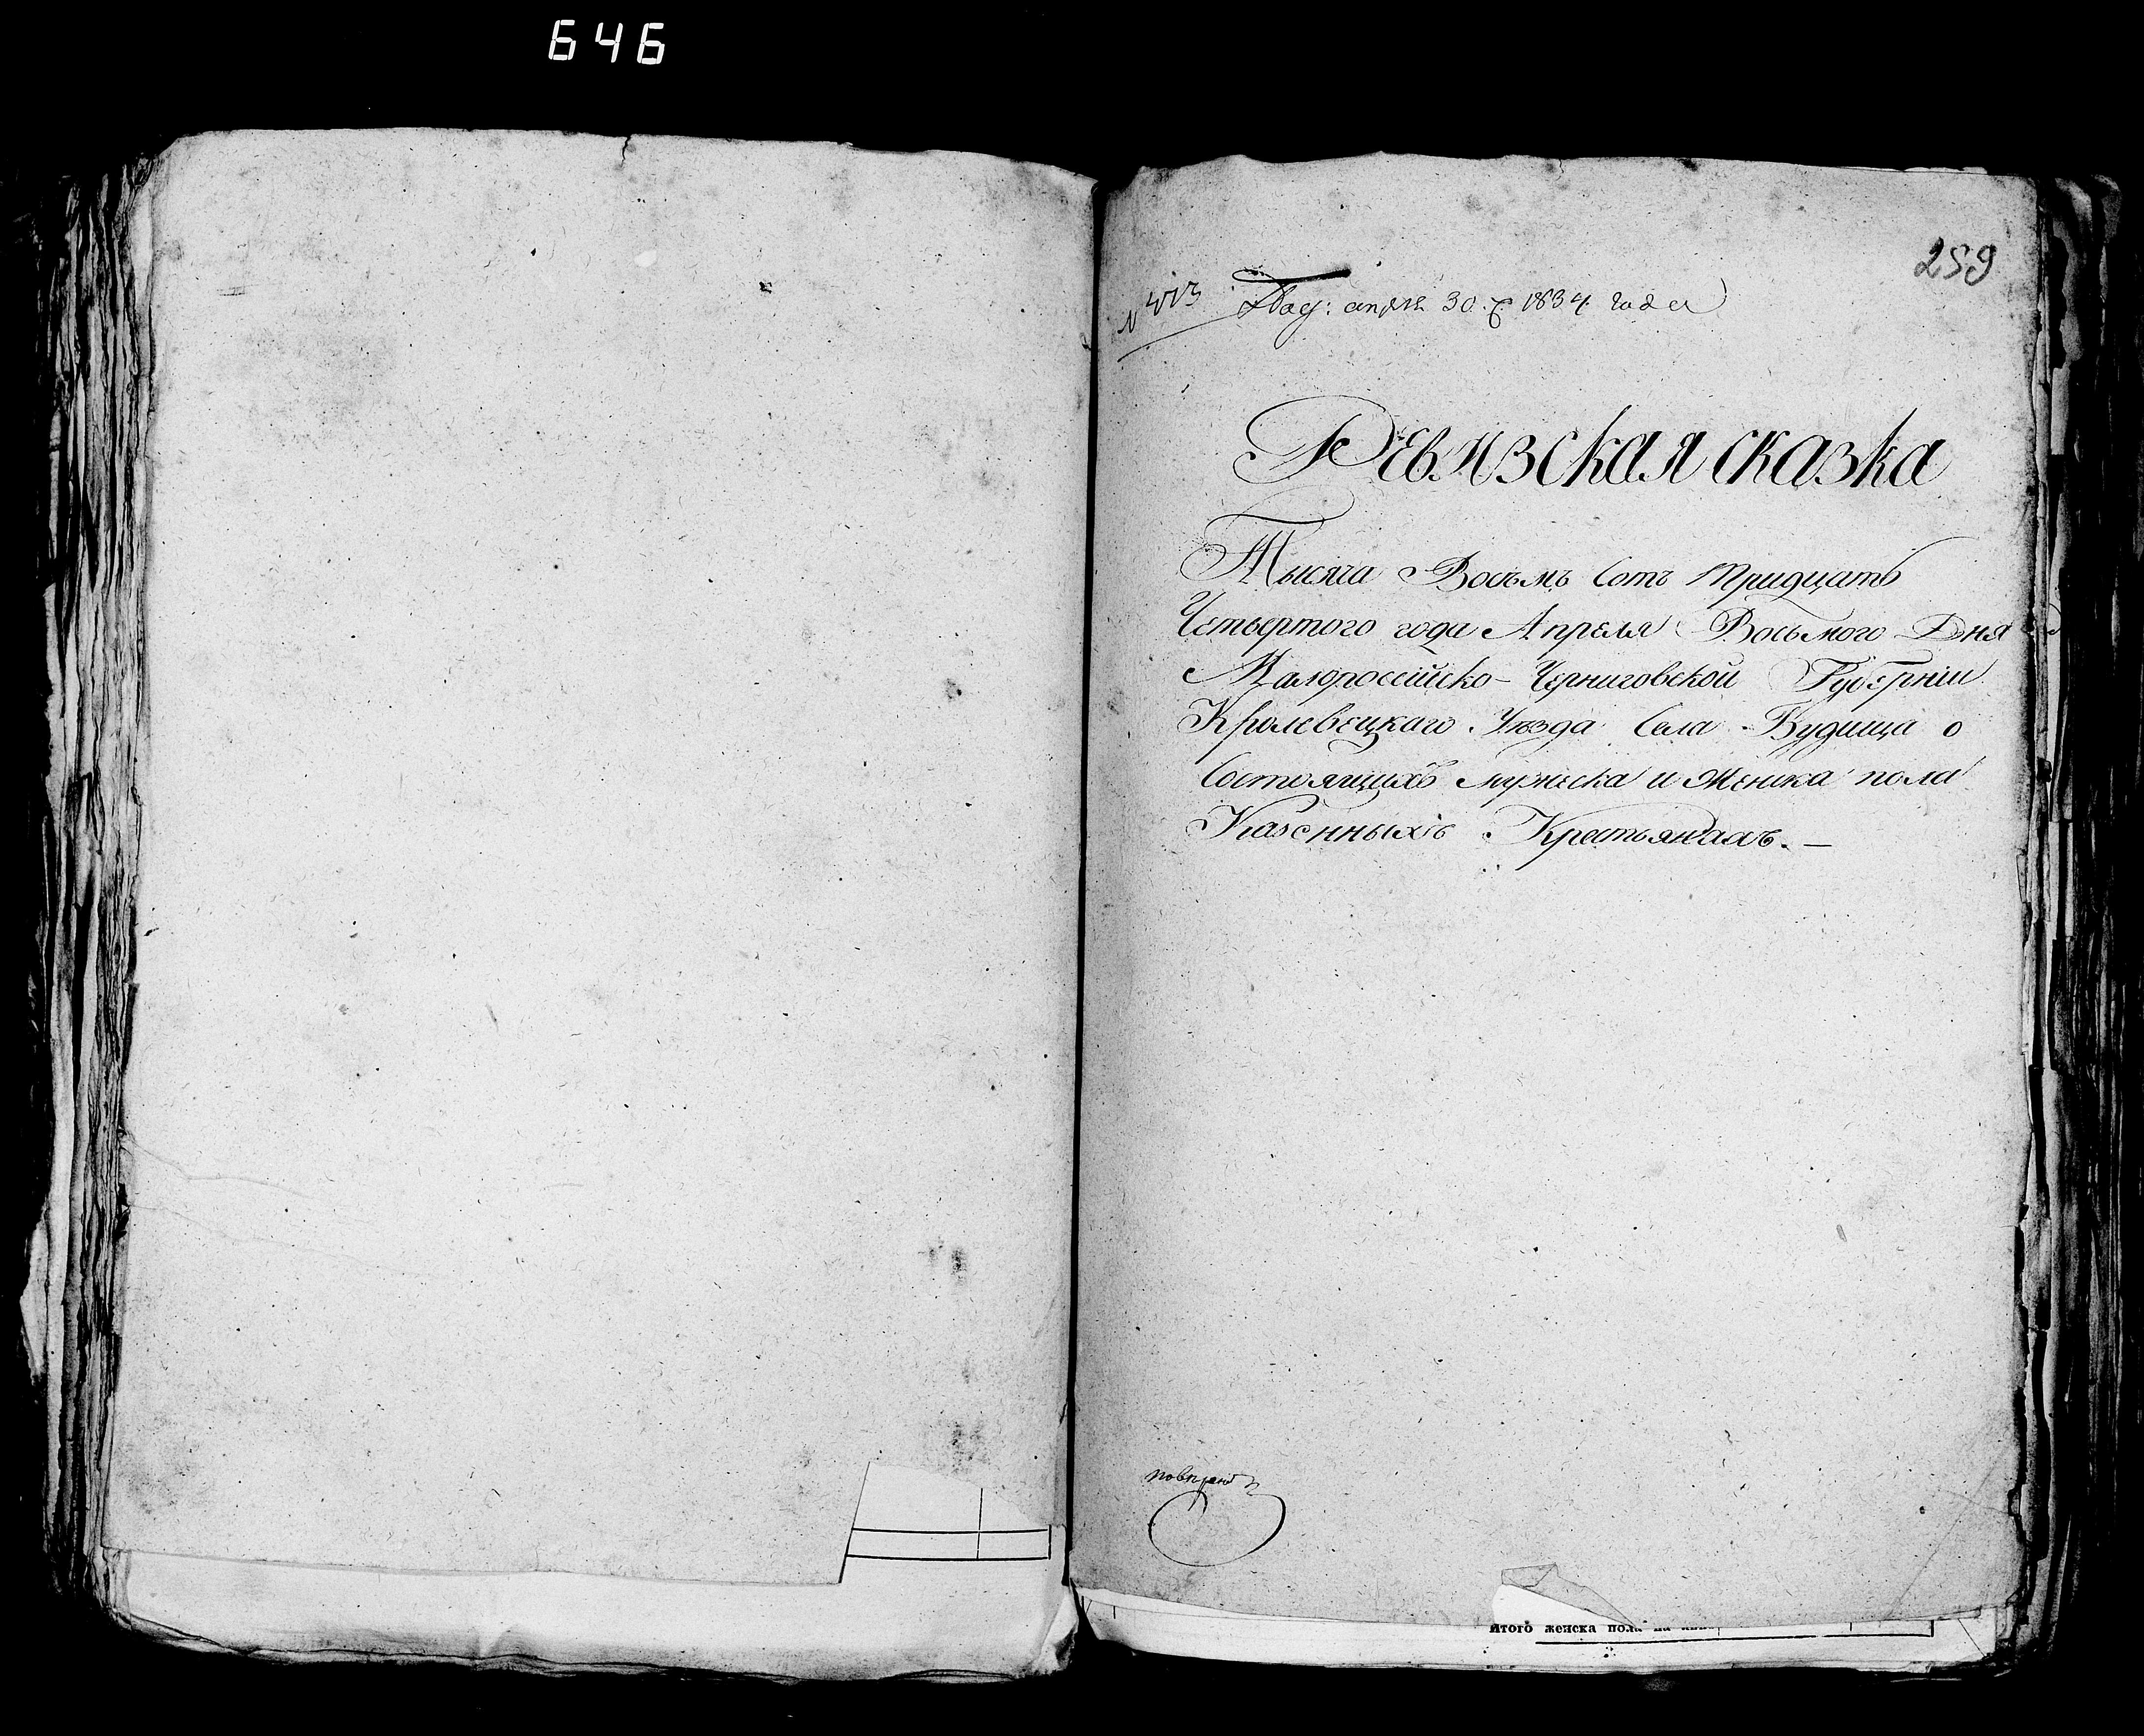 646
259
апреля 30. 1834. года
Ревизская сказка
Тысяча Восемъ Сотъ Тридцать
Четвертого года Апреля Восьмого Дня
Малоросейско-Черниговской Губерніи
Кролевецкаго Уѣзда Села Будища о
Состоящихъ мужеска и женска пола
Казенныхъ Крестьянахъ. —
итого женска пола на